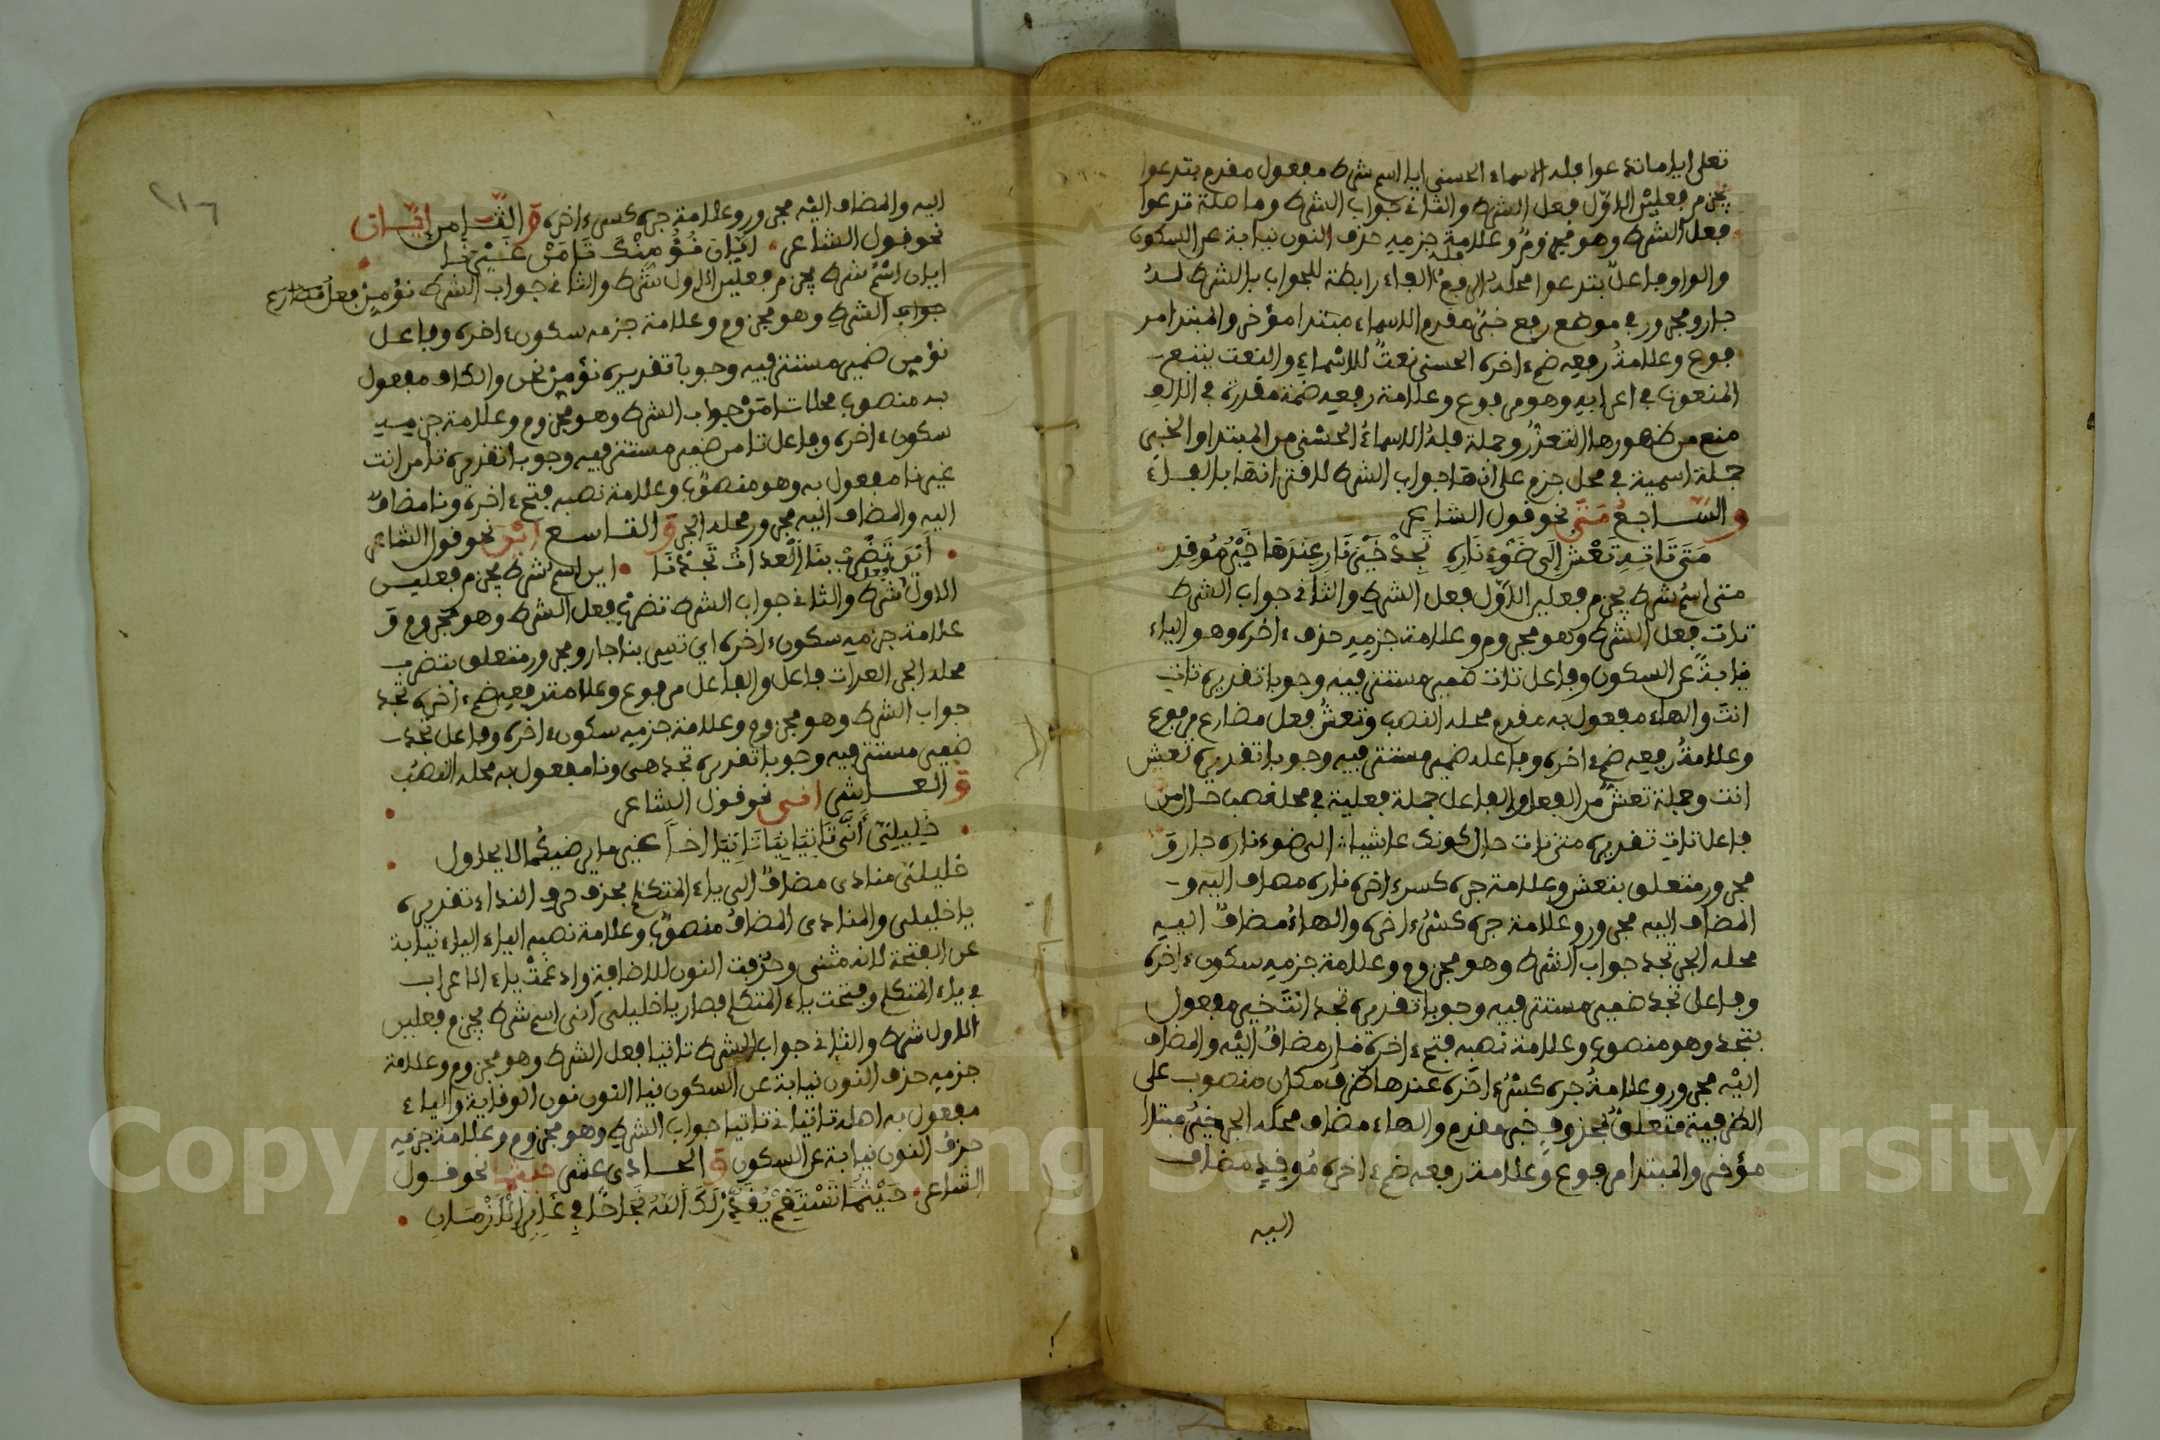 تعلى ايا ما تدعوا فله الاسماء الحسنى ايا اسم شرط مفعول مقدم بتدعوا
يجزم فعلين الاول فعل الشرط والثاني جواب الشرط وما صلة تدعوا
فعل الشرط وهو مجزوم وعلامة جزمه حذف النون نيابة عن السكون
والواو فاعل بتدعوا محله الرفع فله الفاء رابطة للجواب بالشرط له
جار ومجرور في موضع رفع خبر مقدم الاسماء مبتدا مؤخر والمبتدا مر
فوع وعلامة رفعه ضم ءاخره الحسنى نعت للاسماء والنعت يتبع
المنعوت في اعرابه وهو مرفوع وعلامة رفعه ضمة مقدرة في الالف
منع من ظهورها التعذر وجملة فله الاسماء الحسنى من المبتدا والخبر
جملة اسمية في محل جزم على انها جواب الشرط لاقترانها بالفاء
و السابع متى نحو قول الشاعر
متى تاته تعش الى ضوء ناره تجد خير نار عندها خير موقد
متى اسم شرط يجزم فعلين الاول فعل الشرط والثاني جواب الشرط
تات فعل الشرط وهو مجزوم وعلامة جزمه حذف ءاخره وهو الياء
نيابة عن السكون وفاعل تات ضمير مستتر فيه وجوبا تقديره تات
انت والهاء مفعول به مقدم محله النصب وتعش فعل مضارع مرفوع
وعلامة رفعه ضم ءاخره وفاعله ضمير مستتر فيه وجوبا تقديره تعش
انت وجملة تعش من الفعل والفاعل جملة فعلية في محل نصب حال من
فاعل تات تقديره متى تات حال كونك عاشيا الى ضوء ناره جار و
مجرور متعلق بتعش وعلامة جره كسر ءاخره ناره مضاف اليه و
المضاف اليه مجرور وعلامة جره كسر ءاخره والهاء مضاف اليه
محله الجر تجد جواب الشرط وهو مجزوم وعلامة جزمه سكون ءاخره
وفاعل تجد ضمير مستتر فيه وجوبا تقديره تجد انت خير مفعول
بتجد وهو منصوب وعلامة نصبه فتح ءاخره نار مضاف اليه والمضاف
اليه مجرور وعلامة جره كسر ءاخره عندها ظرف مكان منصوب على
الظرفية متعلق بمحذوف خبر مقدم والهاء مضاف محله الجر خير مبتدا
مؤخر والمبتدا مرفوع وعلامة رفعه ضم ءاخره موقد مضاف
اليه
اليه والمضاف اليه مجرور وعلامة جره كسر ءاخره و الثامن ايان
نحو قول الشاعر ايان نؤمنك تامن غيرنا
ايان اسم شرط يجزم فعلين الاول شرط والثاني جواب الشرط نؤمن فعل مضارع
جواب الشرط وهو مجزوم وعلامة جزمه سكون ءاخره وفاعل
نؤمن ضمير مستتر فيه وجوبا تقديره نؤمن نحن والكاف مفعول
به منصوب محلا تامن جواب الشرط وهو مجزوم وعلامة جزمه
سكون ءاخره وفاعل تامن ضمير مستتر فيه وجوبا تقديره تامن انت
غيرنا مفعول به وهو منصوب وعلامة نصبه فتح ءاخره ونا مضاف
اليه والمضاف اليه مجرور محله الجر و التاسع اين نحو قول الشاعر
اين تضرب بنا العداة تجدنا اين اسم شرط يجزم فعلين
الاول فعل شرط والثاني جواب الشرط تضرب فعل الشرط وهو مجزوم و
علامة جزمه سكون ءاخره اي تسير بنا جار ومجرور متعلق بتضرب
محله الجر العداة فاعل والفاعل مرفوع وعلامة رفعه ضم ءاخره تجد
جواب الشرط وهو مجزوم وعلامة جزمه سكون ءاخره وفاعل تجد
ضمير مستتر فيه وجوبا تقديره تجد هى ونا مفعول به محله النصب
و العاشر انى نحو قول الشاعر
خليلي أنى تاتيانى تاتيا اخا غير ما يرضيكما لا يحاول
خليلي منادى مضاف الى ياء المتكلم بحذف حرف النداء تقديره
يا خليلي والمنادى المضاف منصوب وعلامة نصبه الياء الياء نيابة
عن الفتحة لانه مثنى وحذفت النون للاضافة وادغمت ياء الاعراب
في ياء المتكلم وفتحت ياء المتكلم فصار يا خليلي أنى اسم شرط يجزم فعلين
الاول شرط والثاني جواب الشرط تاتيا فعل الشرط وهو مجزوم وعلامة
جزمه حذف النون نيابة عن السكون نيا النون نون الوقاية والياء
مفعول به اهله تاتيانى تاتيا جواب الشرط وهو مجزوم وعلامة جزمه
حذف النون نيابة عن السكون و الحادي عشر حيثما نحو قول
الشاعر حيثما تستقم يقدر لك الله نجاحا في غابر الازمان